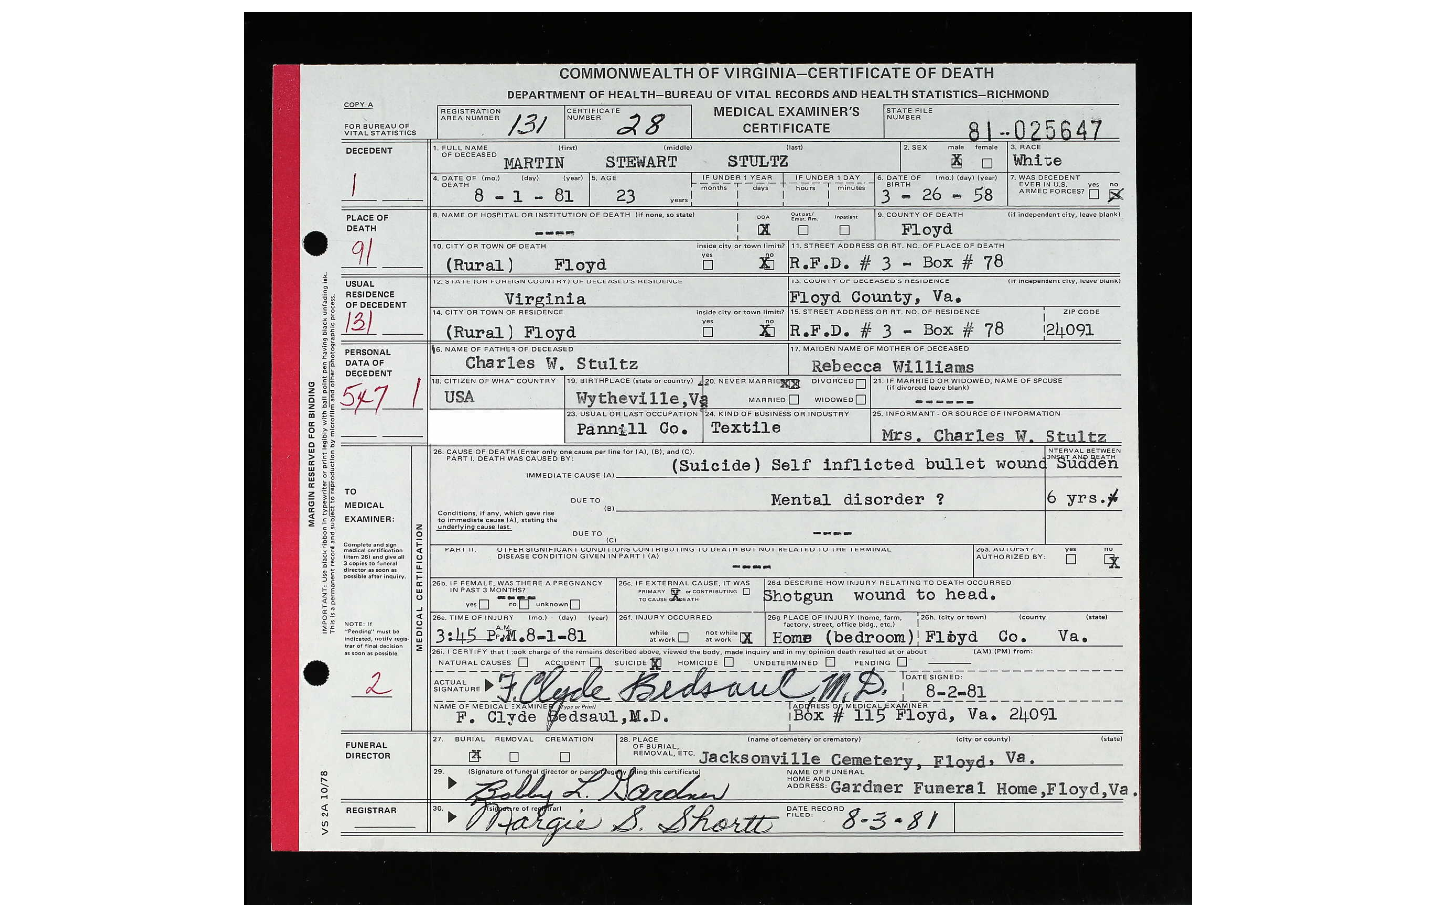 COMMONWEALTH OF VIRGINIA—CERTIFICATE OF DEATH
DEPARTMENT OF HEALTH—BUREAU OF VITAL RECORDS AND HEALTH STATISTICS—RICHMOND
COPY A
FOR BUREAU OF VITAL STATISTICS
REGISTRATION AREA NUMBER 131
CERTIFICATE NUMBER 28
MEDICAL EXAMINER'S CERTIFICATE
STATE FILE NUMBER 81-025647
DECEDENT
1
1. FULL NAME OF DECEASED (first) (middle) (last)
MARTIN STEWART STULTZ
2. SEX male female X
3. RACE White
4. DATE OF DEATH (mo.) (day) (year) 8 - 1 - 81
5. AGE 23 years
IF UNDER 1 YEAR months days
IF UNDER 1 DAY hours minutes
6. DATE OF BIRTH (mo.) (day) (year) 3 - 26 - 58
7. WAS DECEDENT EVER IN U.S. ARMED FORCES? yes no X
PLACE OF DEATH
91
8. NAME OF HOSPITAL OR INSTITUTION OF DEATH (if none, so state) ----
DOA X Outpat/Emer. Rm. Inpatient
9. COUNTY OF DEATH (if independent city, leave blank) Floyd
10. CITY OR TOWN OF DEATH inside city or town limits? yes no X
(Rural) Floyd
11. STREET ADDRESS OR RT. NO. OF PLACE OF DEATH
R.F.D. # 3 - Box # 78
USUAL RESIDENCE OF DECEDENT
131
12. STATE (OR FOREIGN COUNTRY) OF DECEASED'S RESIDENCE
Virginia
13. COUNTY OF DECEASED'S RESIDENCE (if independent city, leave blank)
Floyd County, Va.
14. CITY OR TOWN OF RESIDENCE inside city or town limits? yes no X
(Rural) Floyd
15. STREET ADDRESS OR RT. NO. OF RESIDENCE ZIP CODE
R.F.D. # 3 - Box # 78 24091
PERSONAL DATA OF DECEDENT
547 1
16. NAME OF FATHER OF DECEASED
Charles W. Stultz
17. MAIDEN NAME OF MOTHER OF DECEASED
Rebecca Williams
18. CITIZEN OF WHAT COUNTRY
USA
19. BIRTHPLACE (state or country)
Wytheville,Va
20. NEVER MARRIED XX DIVORCED
MARRIED WIDOWED
21. IF MARRIED OR WIDOWED, NAME OF SPOUSE (if divorced leave blank)
------
23. USUAL OR LAST OCCUPATION
Pannill Co.
24. KIND OF BUSINESS OR INDUSTRY
Textile
25. INFORMANT - OR SOURCE OF INFORMATION
Mrs. Charles W. Stultz
26. CAUSE OF DEATH (Enter only one cause per line for (A), (B), and (C).
PART I. DEATH WAS CAUSED BY:
INTERVAL BETWEEN ONSET AND DEATH
IMMEDIATE CAUSE (A) (Suicide) Self inflicted bullet wound Sudden
DUE TO (B) Mental disorder ? 6 yrs.
Conditions, if any, which gave rise to immediate cause (A), stating the underlying cause last.
DUE TO (C) ----
PART II. OTHER SIGNIFICANT CONDITIONS CONTRIBUTING TO DEATH BUT NOT RELATED TO THE TERMINAL DISEASE CONDITION GIVEN IN PART I (A)
----
26a. AUTOPSY? AUTHORIZED BY: yes no X
TO MEDICAL EXAMINER:
Complete and sign medical certification (item 26) and give all 3 copies to funeral director as soon as possible after inquiry.
NOTE: If "Pending" must be indicated, notify registrar of final decision as soon as possible.
2
MEDICAL CERTIFICATION
26b. IF FEMALE, WAS THERE A PREGNANCY IN PAST 3 MONTHS? ----
yes no unknown
26c. IF EXTERNAL CAUSE, IT WAS
PRIMARY X or CONTRIBUTING TO CAUSE OF DEATH
26d DESCRIBE HOW INJURY RELATING TO DEATH OCCURRED
Shotgun wound to head.
26e. TIME OF INJURY (mo.) (day) (year)
3:45 P.M. 8-1-81
26f. INJURY OCCURRED
while at work not while at work X
26g PLACE OF INJURY (home, farm, factory, street, office bldg., etc.)
Home (bedroom)
26h. (city or town) (county) (state)
Floyd Co. Va.
26i. I CERTIFY that I took charge of the remains described above, viewed the body, made inquiry and in my opinion death resulted at or about (AM) (PM) from:
NATURAL CAUSES ACCIDENT SUICIDE X HOMICIDE UNDETERMINED PENDING
ACTUAL SIGNATURE F. Clyde Bedsaul, M.D.
DATE SIGNED: 8-2-81
NAME OF MEDICAL EXAMINER (Type or Print)
F. Clyde Bedsaul,M.D.
ADDRESS OF MEDICAL EXAMINER
Box # 115 Floyd, Va. 24091
FUNERAL DIRECTOR
27. BURIAL REMOVAL CREMATION
X
28. PLACE OF BURIAL, REMOVAL, ETC. (name of cemetery or crematory) (city or county) (state)
Jacksonville Cemetery, Floyd, Va.
29. (Signature of funeral director or person legally filing this certificate)
Bobby L. Gardner
NAME OF FUNERAL HOME AND ADDRESS: Gardner Funeral Home,Floyd,Va.
REGISTRAR
30. (signature of registrar)
Margie S. Shortt
DATE RECORD FILED: 8-3-81
MARGIN RESERVED FOR BINDING
IMPORTANT: Use black ribbon in typewriter or print legibly with ball point pen having black unfading ink.
This is a permanent record and subject to reproduction by microfilm and other photographic process.
VS 2A 10/78